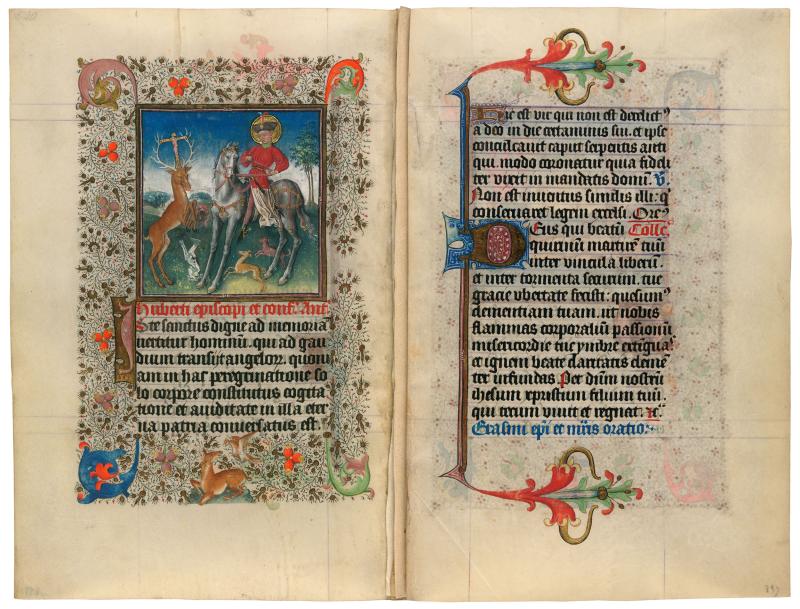 Huberti episcopi et conf. Ant.
Iste sanctus digne ad memoria
uertitur hominū. qui ad gau
dium transijt angelorꝝ. quoni
am in hac peregrinatione so
lo corpore constitutus cogita
tione et auiditate in illa eter
na patria conuersatus est.
Hic est vir qui non est derelict⁹
a deo in die certaminis sui. et ipse
conculcauit caput serpentis anti
qui. modo coronatur quia fideli
ter vixit in mandatis domini. V̓.
Non est inuentus similis illi: q
conseruaret legem excelsi. Orc⁹
Deus qui beatū Collc̄.
quirinū martirē tuū
inter vincula liberū.
et inter tormenta securum. tue
gracie vbertate fecisti: quesum⁹
clementiam tuam. ut nobis
flammas corporaliū passionū
misericordie tue ymbre extingua⁹
et ignem beate claritatis cleme
ter infundas. Per dūm nostrū
ihesum xpristum filium tuū.
qui tecum viuit et regnat. ⁊c̄.
Erasmi epī et mr̄is oratio: